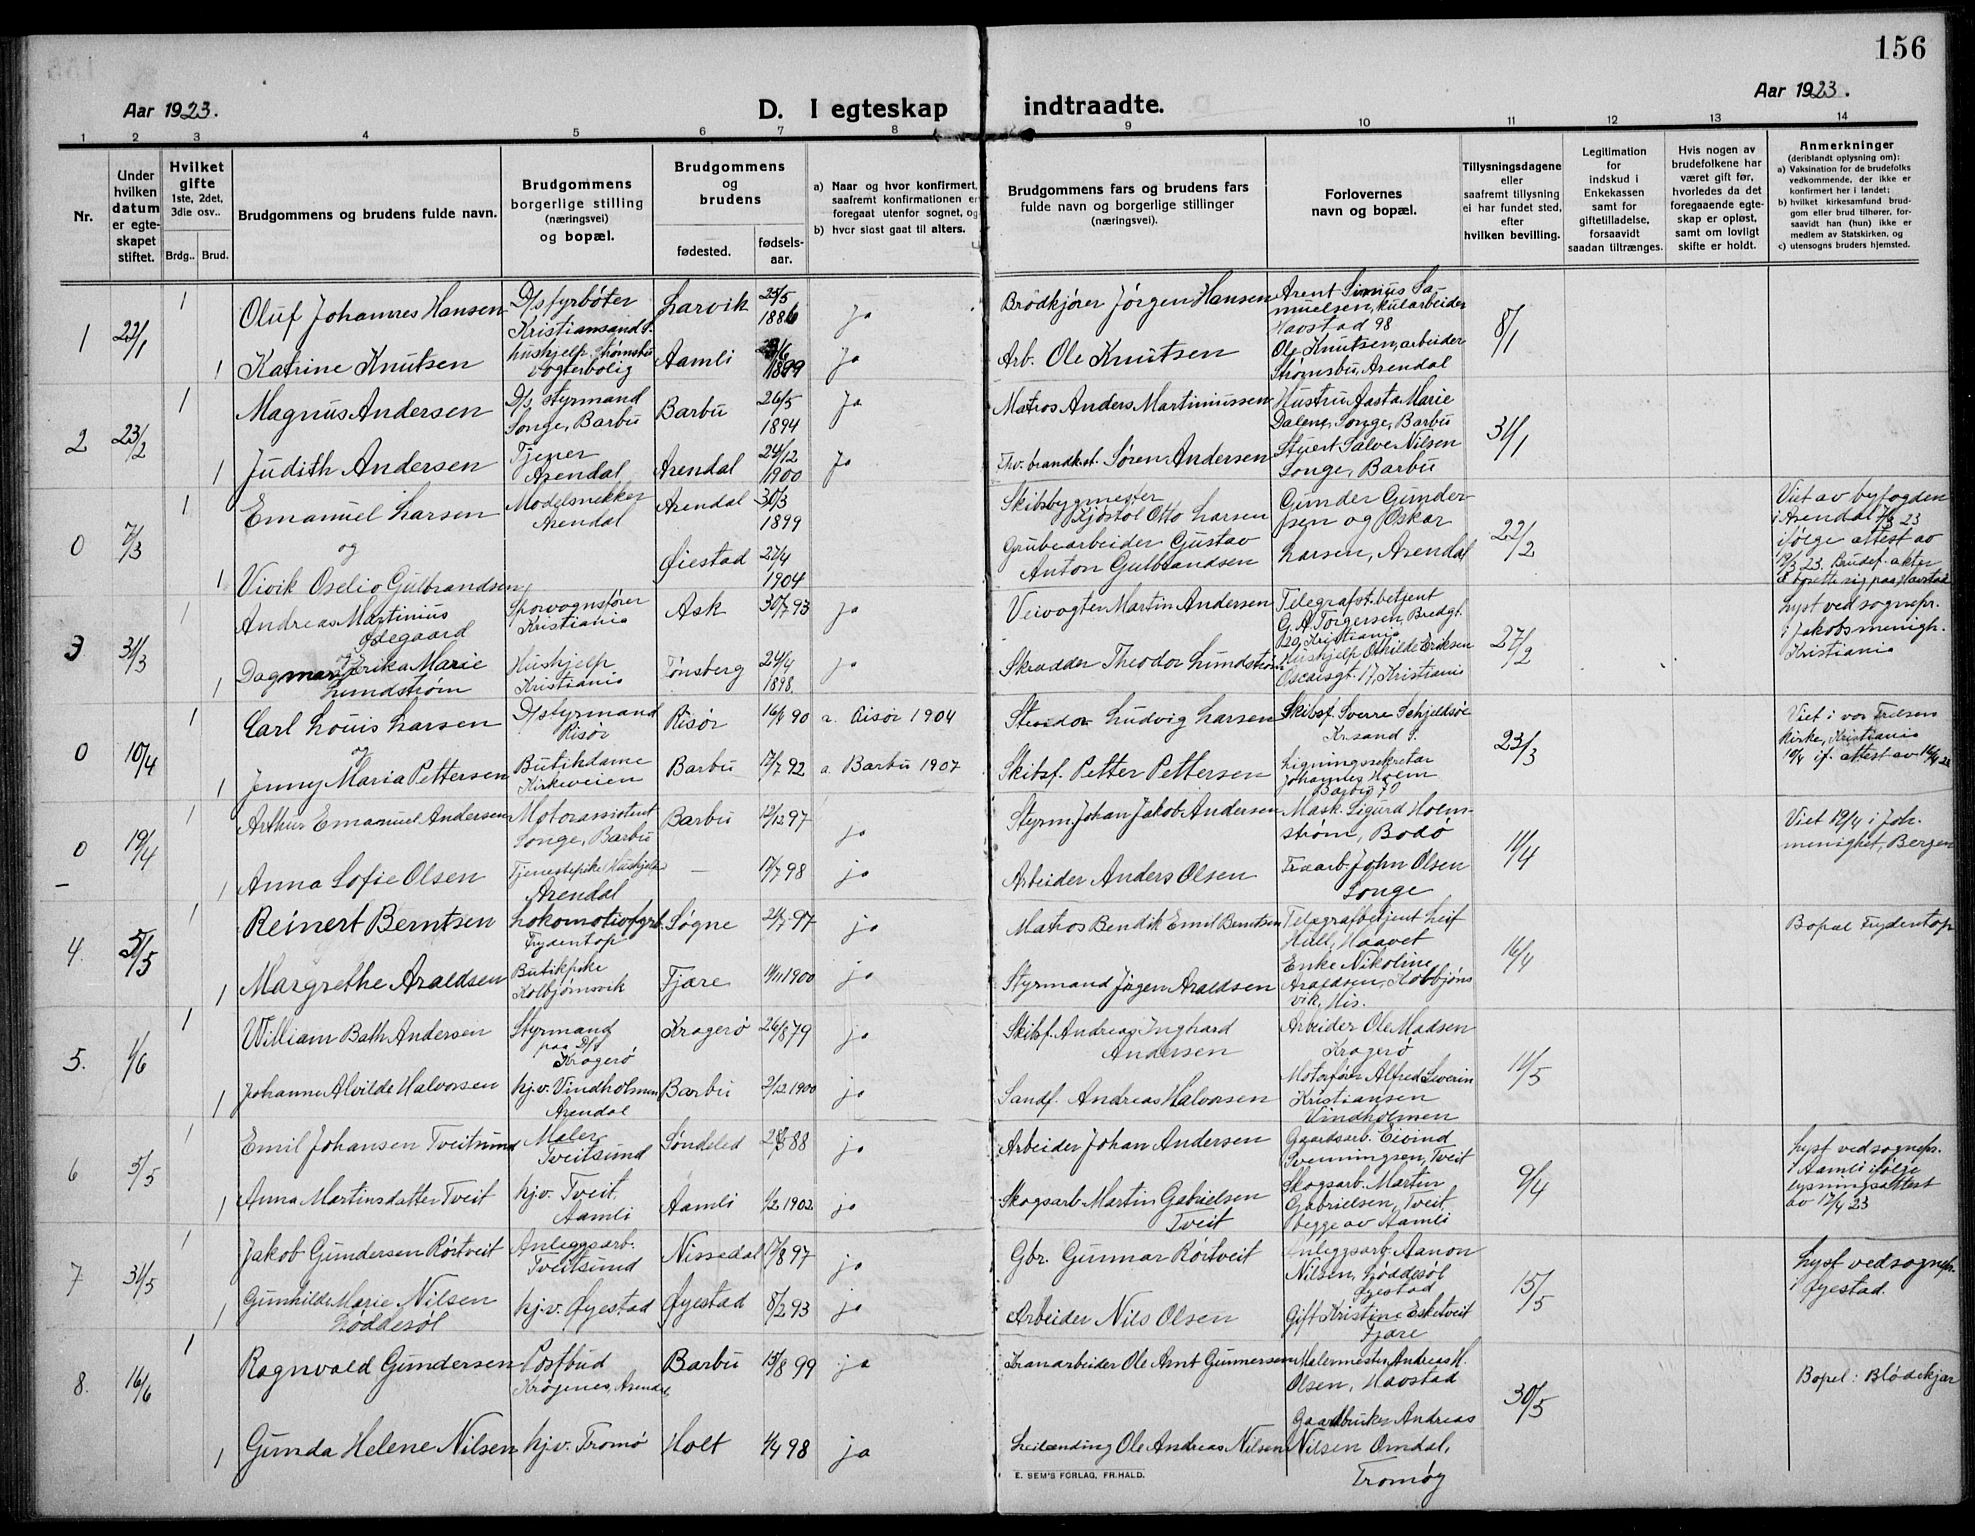 156
Aar 1923.
D. I egteskap indtraadte.
Aar 1923.
1 2 3 4 5 6 7 8 9 10 11 12 13 14
Nr.
Under hvilken datum er egte-skapet stiftet.
Hvilket gifte 1ste, 2det, 3die osv..
Brdg.. Brud.
Brudgommens og brudens fulde navn.
Brudgommens borgerlige stilling (næringsvei) og bopæl.
Brudgommens og brudens
fødested. fødsels-aar.
a) Naar og hvor konfirmert, saafremt konfirmationen er foregaat utenfor sognet, og
b) hvor sidst gaat til alters.
Brudgommens fars og brudens fars fulde navn og borgerlige stillinger (næringsvei).
Forlovernes navn og bopæl.
Tillysningsdagene eller saafremt tillysning ei har fundet sted, efter hvilken bevilling.
Legitimation for indskud i Enkekassen samt for giftetilladelse, forsaavidt saadan tiltrænges.
Hvis nogen av brudefolkene har været gift før, hvorledes da det foregaaende egte-skap er opløst, samt om lovligt skifte er holdt.
Anmerkninger
(deriblandt oplysning om):
a) Vaksination for de brudefolks vedkommende, der ikke er konfirmert her i landet;
b) hvilket kirkesamfund brud-gom eller brud tilhører, for-saavidt han (hun) ikke er medlem av Statskirken, og
c) utensogns bruders hjemsted.
1 22/1 1 Oluf Johannes Hansen D/s fyrbøter Kristiansand S. Larvik 25/5 1886 Ja Brødkjører Jørgen Hansen Arent Simius Sa-muelsen, kularbeider Havstad 98 8/1
1 Katrine Knutsen hushjelp, Strømsbu vogterbolig Aamli 1899 Ja Arb. Ole Knutsen Ole Knutsen, arbeider Strømsbu, Arendal
2 23/2 1 Magnus Andersen D/s styrmand Songe, Barbu Barbu 26/5 1894 Ja Matros Anders Martiniussen Hustru Aasta Marie Dalene, Songe, Barbu 31/1
1 Judith Andersen Tjener Arendal Arendal 24/12 1900 Ja Fhv. brandk.st. Søren Andersen Stuert Salve Nilsen Songe, Barbu
0 7/3 1 Emanuel Larsen Modelsnekker Arendal Arendal 30/3 1899 Skibsbygmester Kjøstol Otto Larsen Gunder Gunder-sen og Oskar Larsen, Arendal 22/2 Viet av byfogden i Arendal 7/3 23 ifølge attest av 19/3 23. Brudef. akter
og
1 Vivik Oselio Gulbrandsen Øiestad 27/4 1904 Grubearbeider Gustav Anton Gulbrandsen
3 31/3 1 Andreas Martinius Ødegaard Sporvognsfører Kristiania Ask 30/7 93 ja Veivogter Martin Andersen Telegrafst.betjent G. A. Torgersen, Bredgt. 20, Kristiania 27/2 Lyst ved sognepr. i Jakobs menigh. Kristiania
1 Dagmar Erika Marie Lundstrøm Hushjelp Kristiania Tønsberg 24/4 1898. ja Skrædder Theodor Lundstrøm Hushjelp Othilde Eriksen Oscarsgt. 17, Kristiania
0 10/4 1 Carl Louis Larsen D/styrmand Risør Risør 16/8 90 a. Risør 1904 Ludvig Larsen Skibsf. Sverre Schjeldsøe Kr.sand S. 23/3 Viet i vor Frelsers kirke, Kristiania 10/4 if. attest av 16/4 23
og
1 Jenny Maria Pettersen Butikdame Kirkeveien Barbu 17/7 92 a. Barbu 1907 Skibsf. Petter Pettersen Ligningssekretær Johannes Holm Barbu 70
0 19/4 1 Arthur Emanuel Andersen Motorassistent Songe, Barbu Barbu 12/12 97 ja Styrm. Johan Jakob Andersen Mask. Sigurd Holm-strøm, Bodø 11/4 Viet 19/4 i Joh. menighet, Bergen
– 1 Anna Sofie Olsen Tjenestepike Hushjelp Arendal – 17/7 98 ja Arbeider Anders Olsen Fraarb. John Olsen Songe
4. 5/5 1 Reinert Berntsen Lokomotivfyrb. Frydentop Søgne 21/7 97 ja Matros Bendik Emil Berntsen Telegrafbetjent Leif Hull, Haavet 16/4 Bopæl Frydentop
1 Margrethe Araldsen Butikpike Kolbjørnsvik Fjære 11/11 1900 ja Styrmand Jørgen Araldsen Enke Nikoline Araldsen, Kolbjørns vik, His.
5. 1/6 1 William Bath Andersen Styrmand paa D/S Kragerø Kragerø 26/8 79 ja Skibsf. Andreas Inghard Andersen Arbeider Ole Madsen Kragerø 11/5
1 Johanne Alvilde Halvorsen hj.v. Vindholmen Arendal Barbu 2/12 1900 ja Sandf. Andreas Halvorsen Motorfører Alfred Severin Kristiansen Vindholmen
6 5/5 1 Emil Johansen Tveitsund Maler Tveitsund Søndeled 88 ja Arbeider Johan Andersen Gaardsarb. Eivind Svenningsen, Tveit 9/4 Lyst ved sognepr. i Aamli ifølge lysningsattest av 17/4 23
1 Anna Martinsdatter Tveit hj.v. Tveit, Aamli Aamli 1/2 1902 ja Skogsarb. Martin Gabrielsen Tveit Skogsarb. Martin Gabrielsen, Tveit begge av Aamli
7 31/5 1 Jakob Gundersen Rørtveit Anleggsarb. Tveitsund Nissedal 17/8 97 ja Gbr. Gunnar Rørtveit Anleggsarb. Aanon Nilsen, Løddesøl Øyestad 15/5 Lyst ved sognepr. i Øyestad.
1 Gunhilde Marie Nilsen Løddesøl hj.v. Øyestad Øyestad 8/2 93 ja Arbeider Nils Olsen Gift Kristine Esketveit Fjære
8. 16/6 1 Ragnvald Gundersen Postbud Krøgenes, Arendal Barbu 15/8 99 ja Kranarbeider Ole Arnt Gunnersen Malermester Andreas H. Olsen, Havstad 30/5 Bopel: Blødekjær
1 Gunda Helene Nilsen hj.v. Tromø Holt 1/4 98 ja Leilænding Ole Andreas Nilsen Gaardbruker Andreas Nilsen Omdal, Tromøy
E. SEM'S FORLAG, FR.HALD.